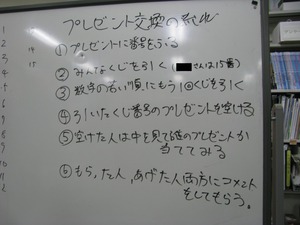 プレゼント交換の流れ
1
2
3
4
5
6
7
8
9
10
11
12
14
15
① プレゼントに番号をふる
② みんなくじを引く(さんは15番)
③ 数字の若い順にもう1回くじを引く
④ 引いたくじ番号のプレゼントを空ける
⑤ 空けた人は中を見て誰のプレゼントか
当ててみる
⑥ もらった人、あげた人両方にコメント
をしてもらう。